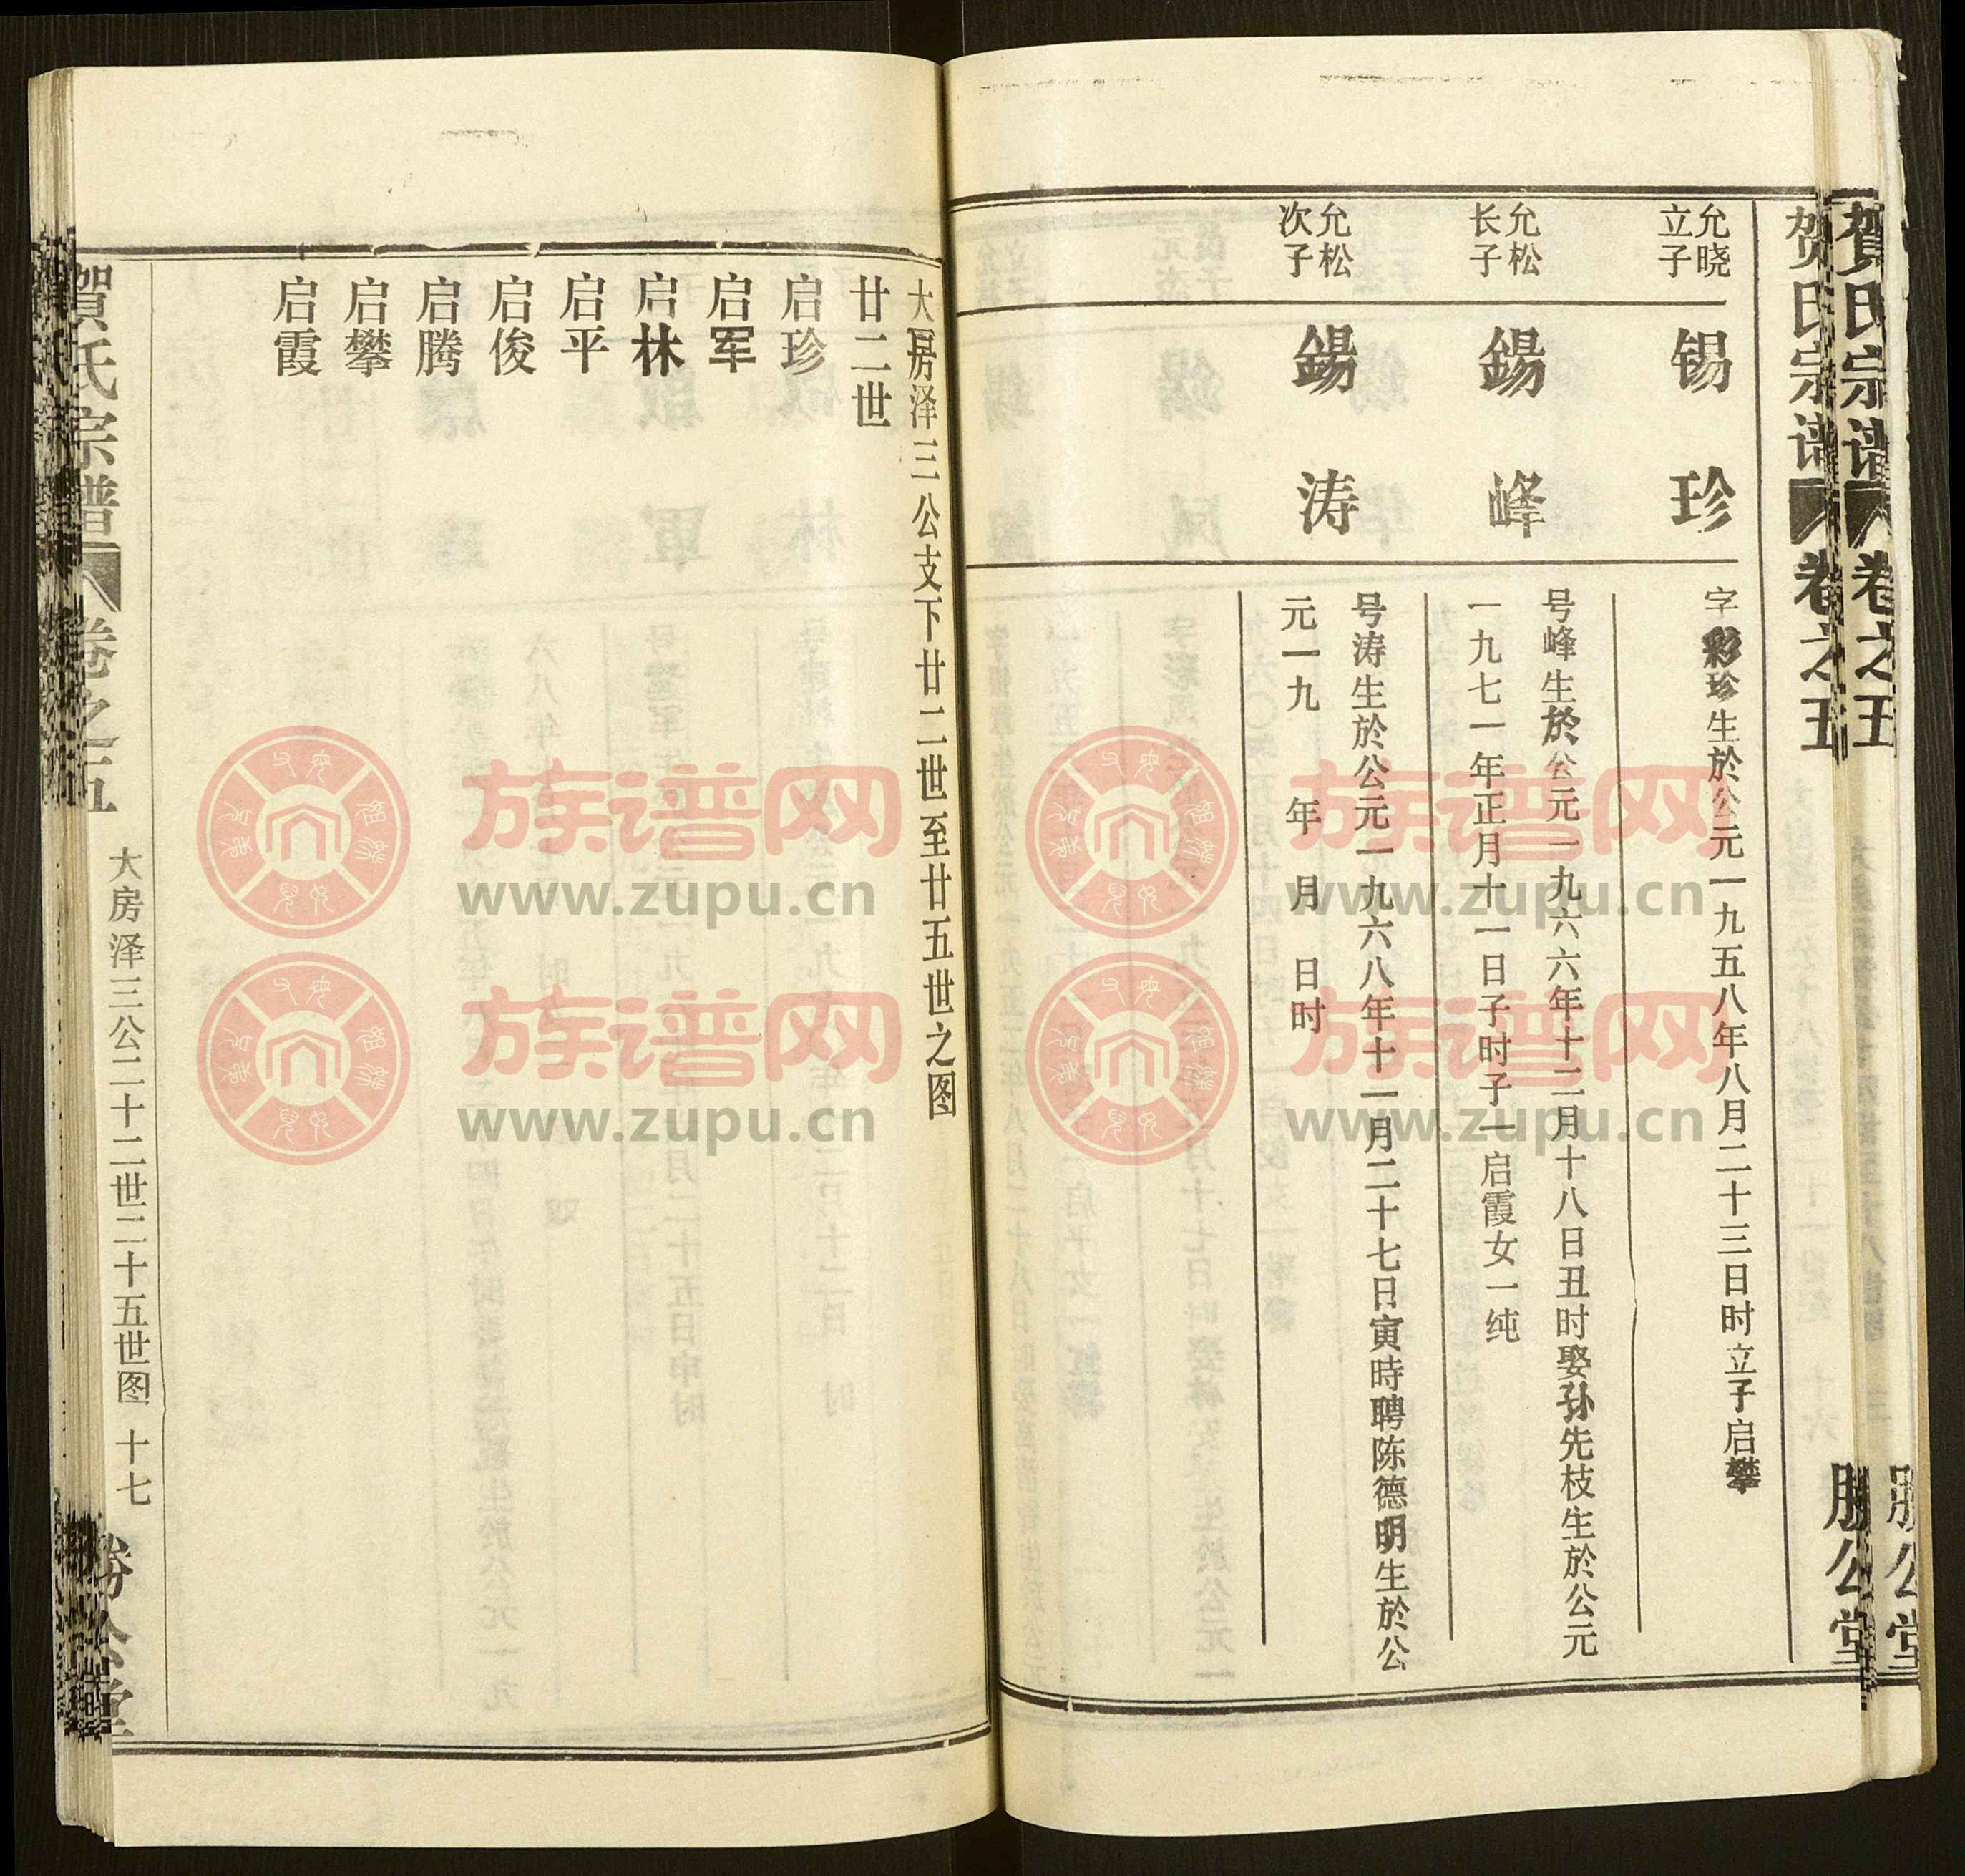 贺氏宗谱 卷之五
勝公堂
贺氏宗谱 卷之五
公堂
允晓
立子
锡珍
字彩珍生於公元一九五八年八月二十三日时立子启攀
允松
长子
鍚峰
号峰生於公元一九六六年十二月十八日丑时娶孙先枝生於公元
一九七一年正月十一日子时子一启霞女一纯
允松
次子
鍚涛
号涛生於公元一九六八年十一月二十七日寅時聘陈德明生於公
元一九 年 月 日时
大房泽三公支下廿二世至廿五世之图
廿二世
启珍
启军
启林
启平
启俊
启腾
启攀
启霞
贺氏宗谱 卷之五
大房泽三公二十二世二十五世图 十七
公堂
族谱网
www.zupu.cn
族谱网
www.zupu.cn
族谱网
www.zupu.cn
族谱网
www.zupu.cn